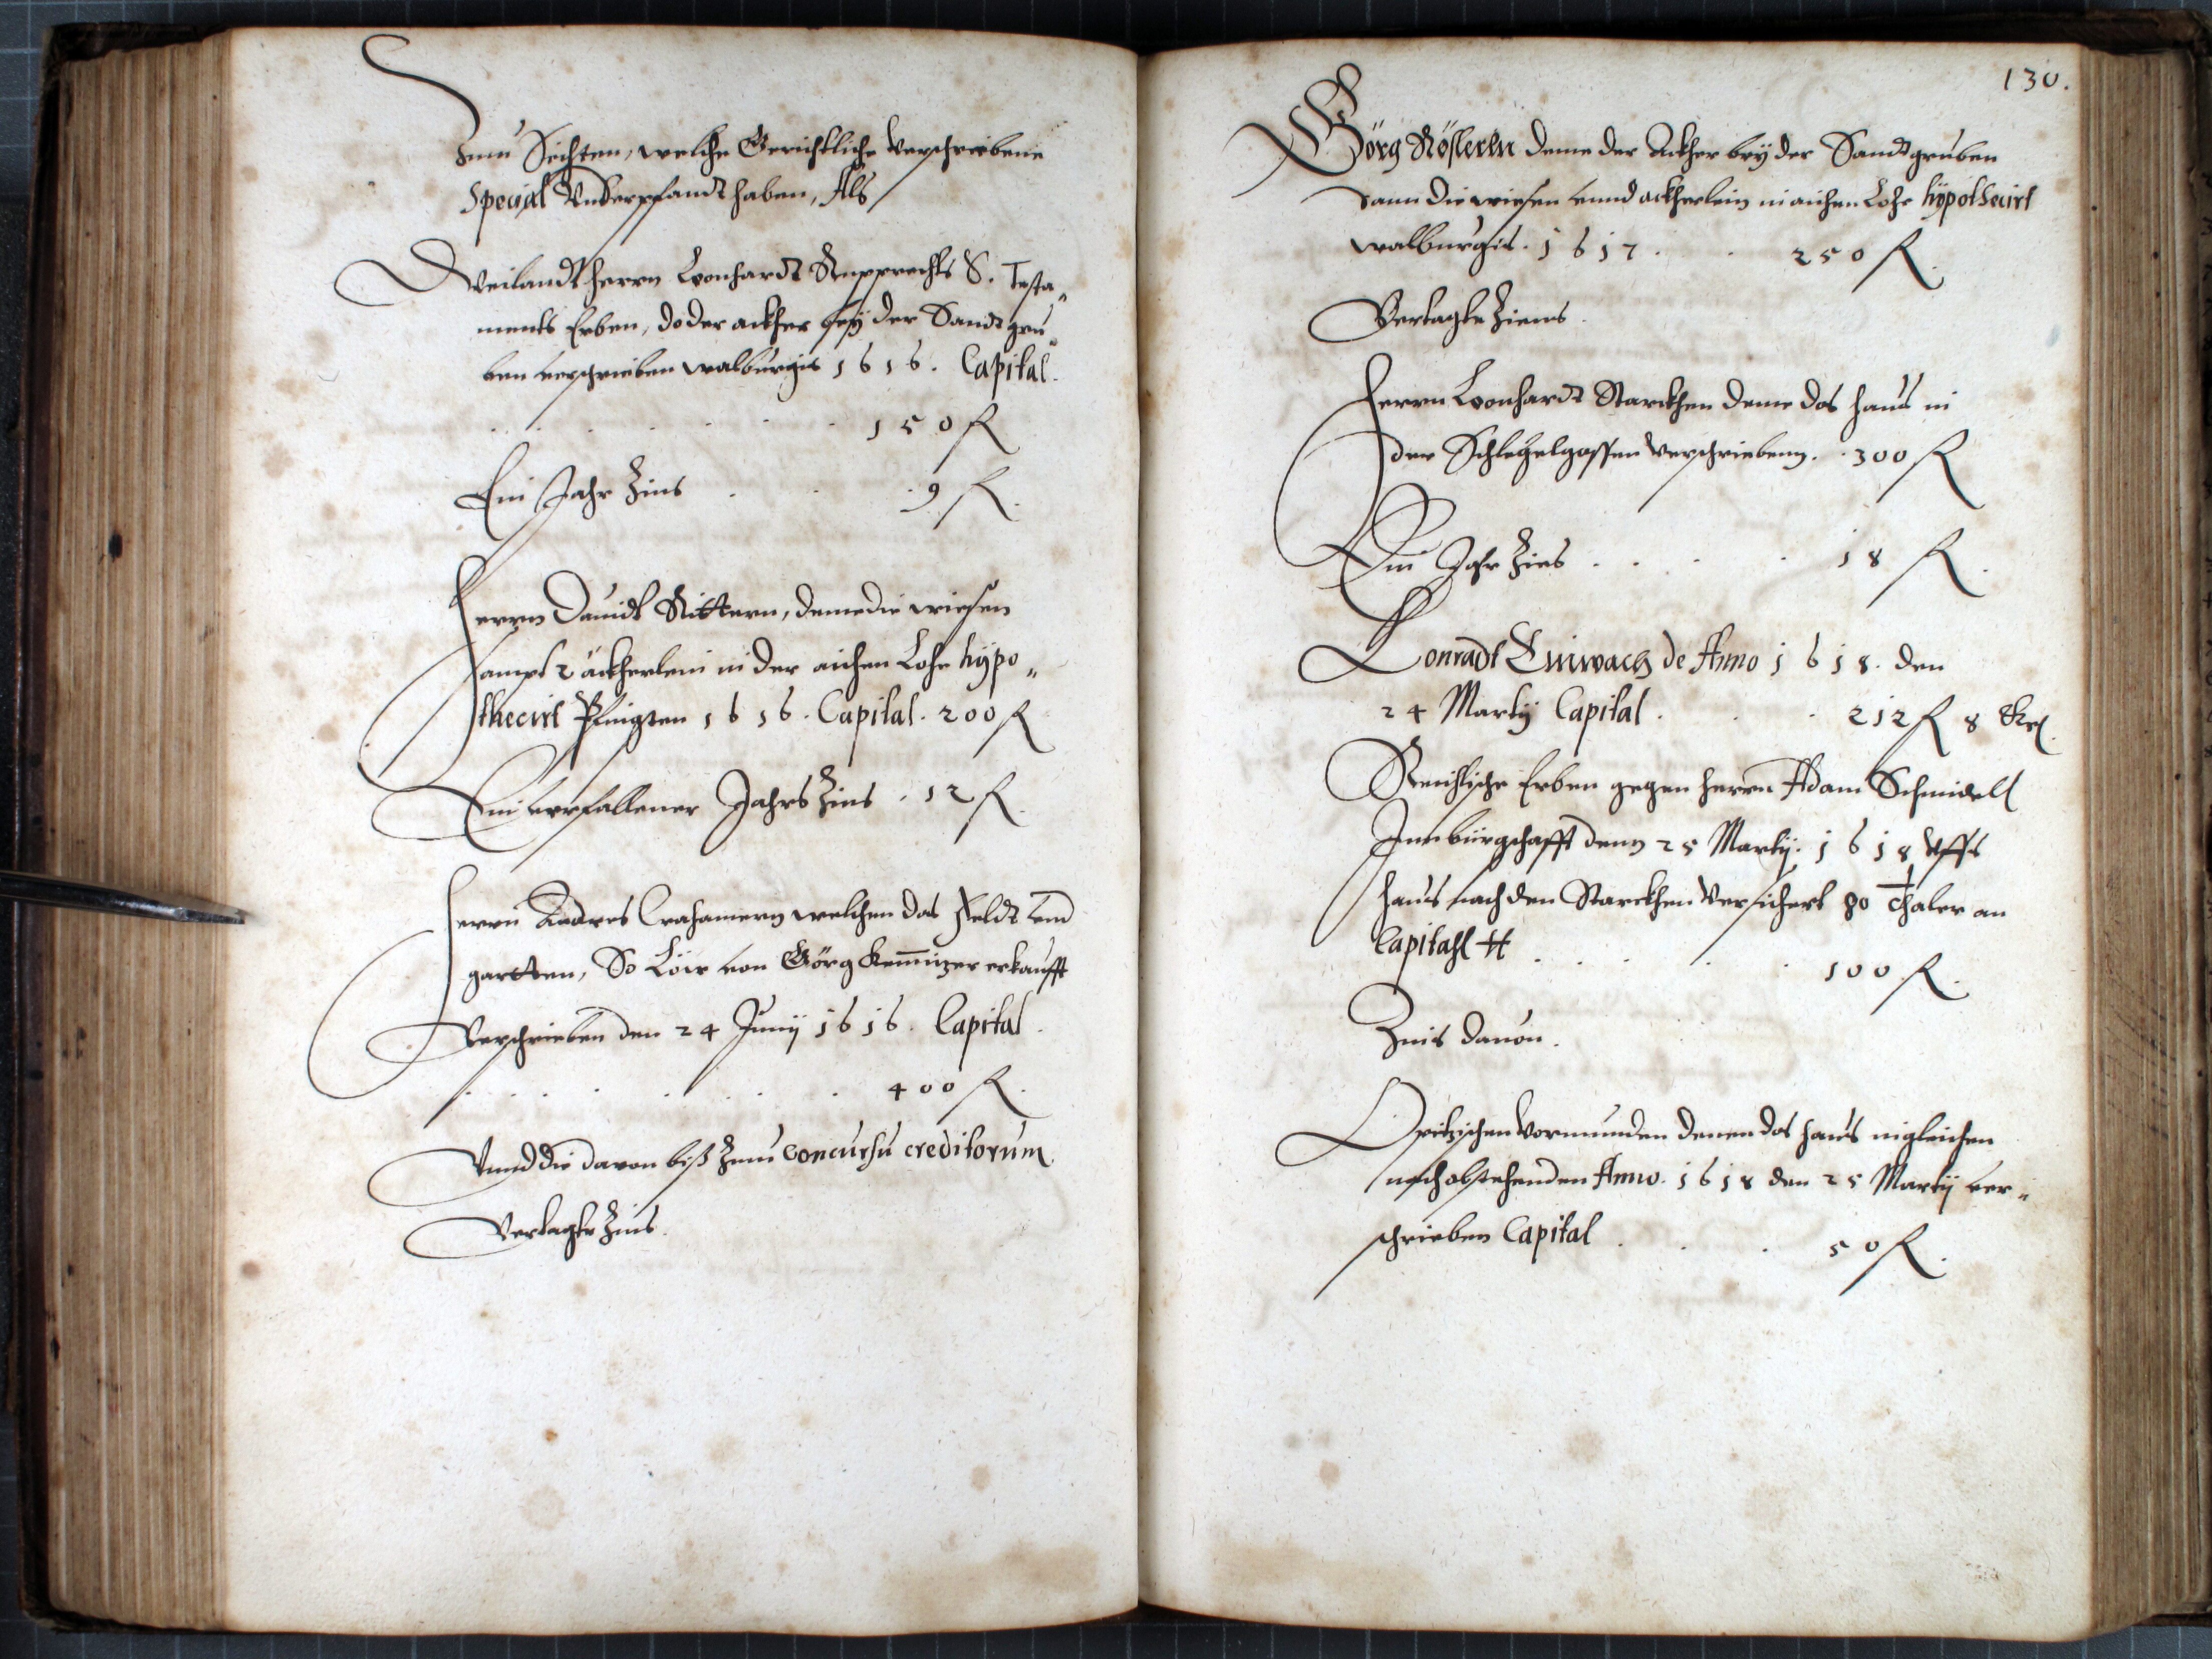 Zum Sechsten, welche Gerichtliche verschriebene
Special Underpfandt haben, Als
Weilandt herrn Leonhardt Rupprechts S. Testa„
ments Erben, do der ackher bey der Sandt gru„
ben verschrieben walburgis 1616. Capital.
. . . . . . 150 fl
Ein Jahr Zins . . . 9 fl.
Herrn Dauidt Rittern, deme die wiesen
sampt 2 äckherlein in der aichen Lohe hypo„
thecirt Pfingsten 1616. Capital. 200 fl
Ein verfallener Jahrs Zins . 12 fl.
Herrn Andres Crahamern welchen das Feldt und
gartten, So Löw von Görg Kemnizer erkaufft
Verschrieben den 24 Junij 1616. Capital.
. . . . . . . 400 fl.
Vnnd die davon biß Zum concursu creditorum
Vertagte Zins.
130.
Görg Rößlerln deme der Ackher bey der Sandtgruben
Dann die wiesen vnnd ackherlein in aichen Lohe hypothecirt
walburgis. 1617. . . 250 fl.
Vertagte Zinns.
Herrn Leonhardt Starckhen deme das haus in
der Schlegelgassen verschriebenn. . 300 fl
Ein Jahr Zins . . . . 18 fl.
Conradt Einwach de Anno 1618. den
24 Martij Capital . . . 212 fl 8 Kr.
Reichische Erben gegen herrn Adam Schmidell
Inn bürgschafft denn 25 Martij. 1618 Uffs
haus nach den Starckhen versichert 80 thaler an
Capitahl tt . . . . . 100 fl.
Zins dauon.
Opitzischen Vormunden denen das haus ingleichen
nach obstehenden Anno. 1618 den 25 Martij ver„
schrieben Capital . . . 50 fl.